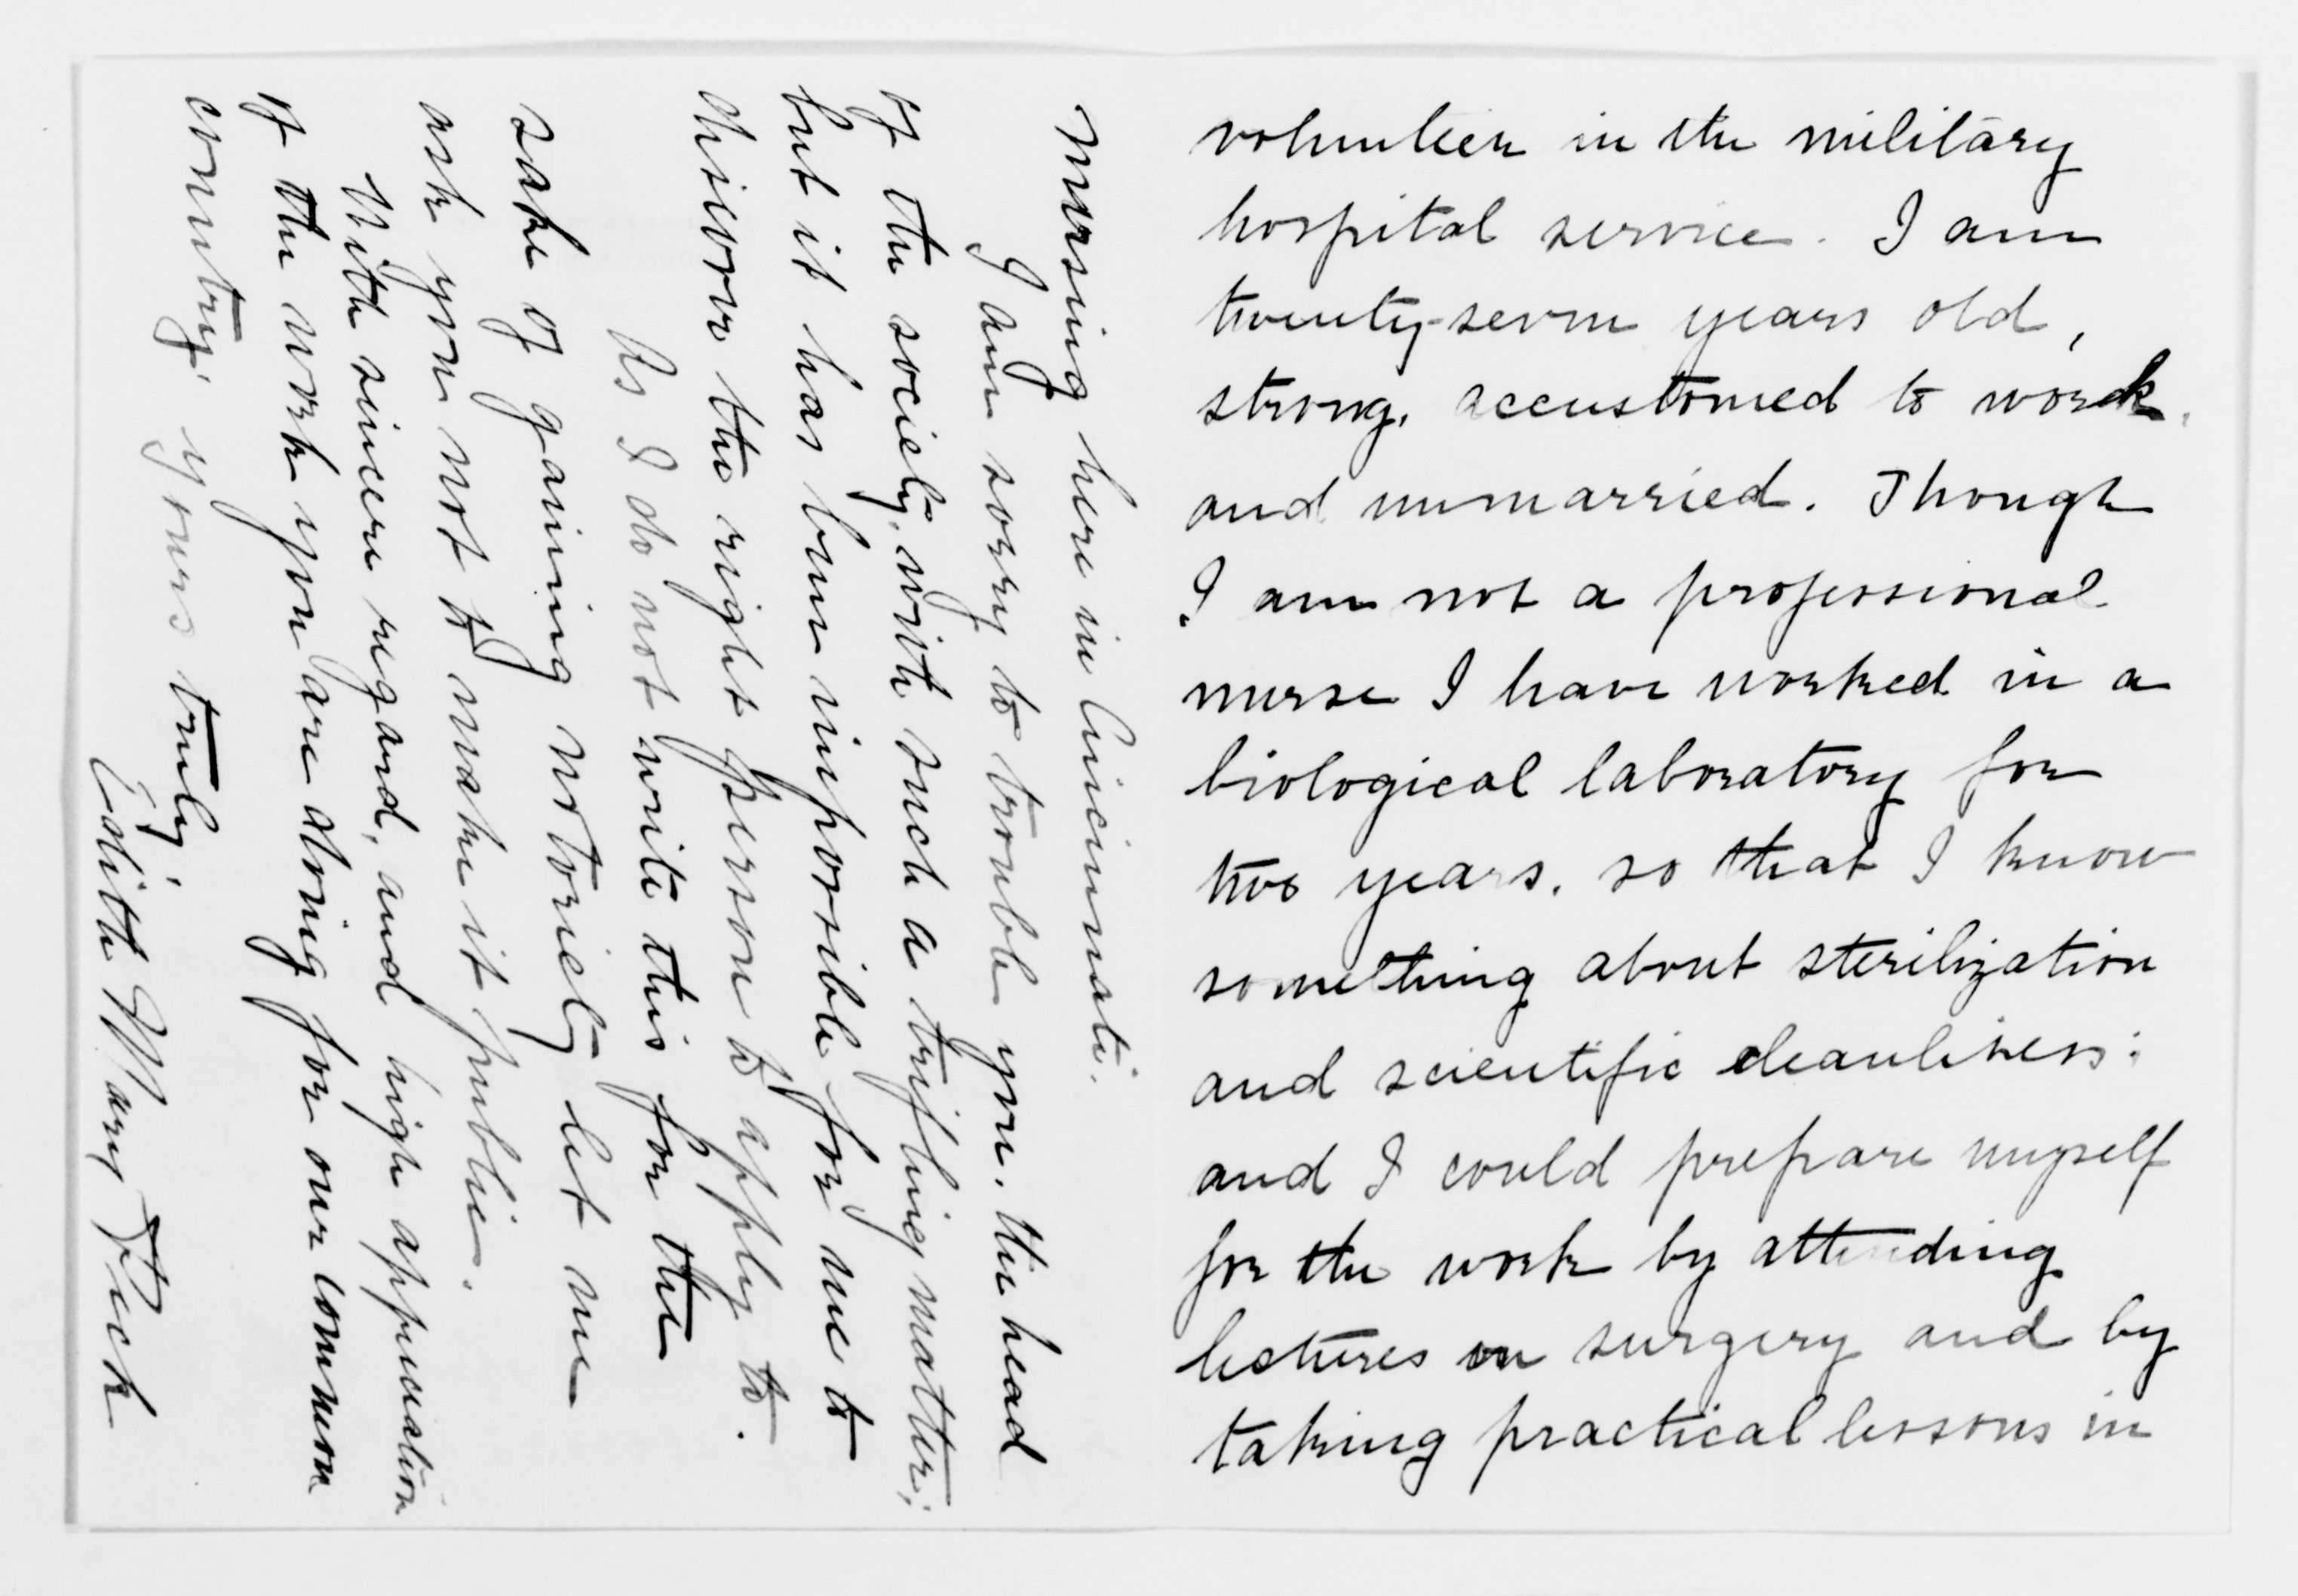 volunteer in the military
hospital service. I am
twenty-seven years old,
strong, accustomed to work,
and unmarried. Though
I am not a professional
nurse I have worked in a
biological laboratory for
two years, so that I know
something about sterilization
and scientific cleanliness;
and I could prepare myself
for the work by attending
lectures on surgery and by
taking practical lessons in
nursing here in Cincinnati.
I am sorry to trouble you, the head
of the society, with such a trifling matter;
but it has been impossible for me to
discover the right person to apply to.
As I do not write this for the
sake of gaining notoriety let me
ask you not to make it public.
With sincere regard, and high appreciation
of the work you are doing for our common
country, yours truly,
Edith Mary Peck